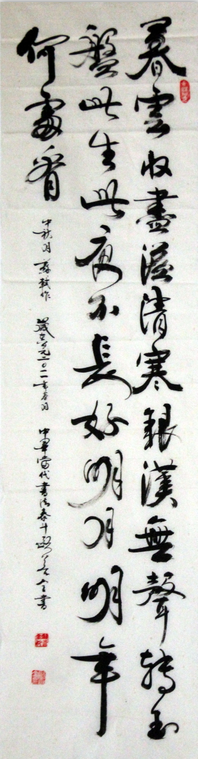 暮雲收盡溢清寒銀漢無聲轉玉
盤此生此夜不長好明月明年
何處看
中秋月 蘇軾作
中華當代書法